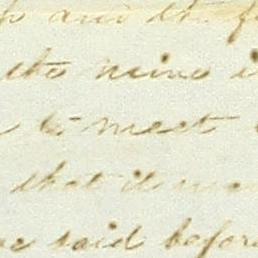 and the
the mine
to meet
that it
said before